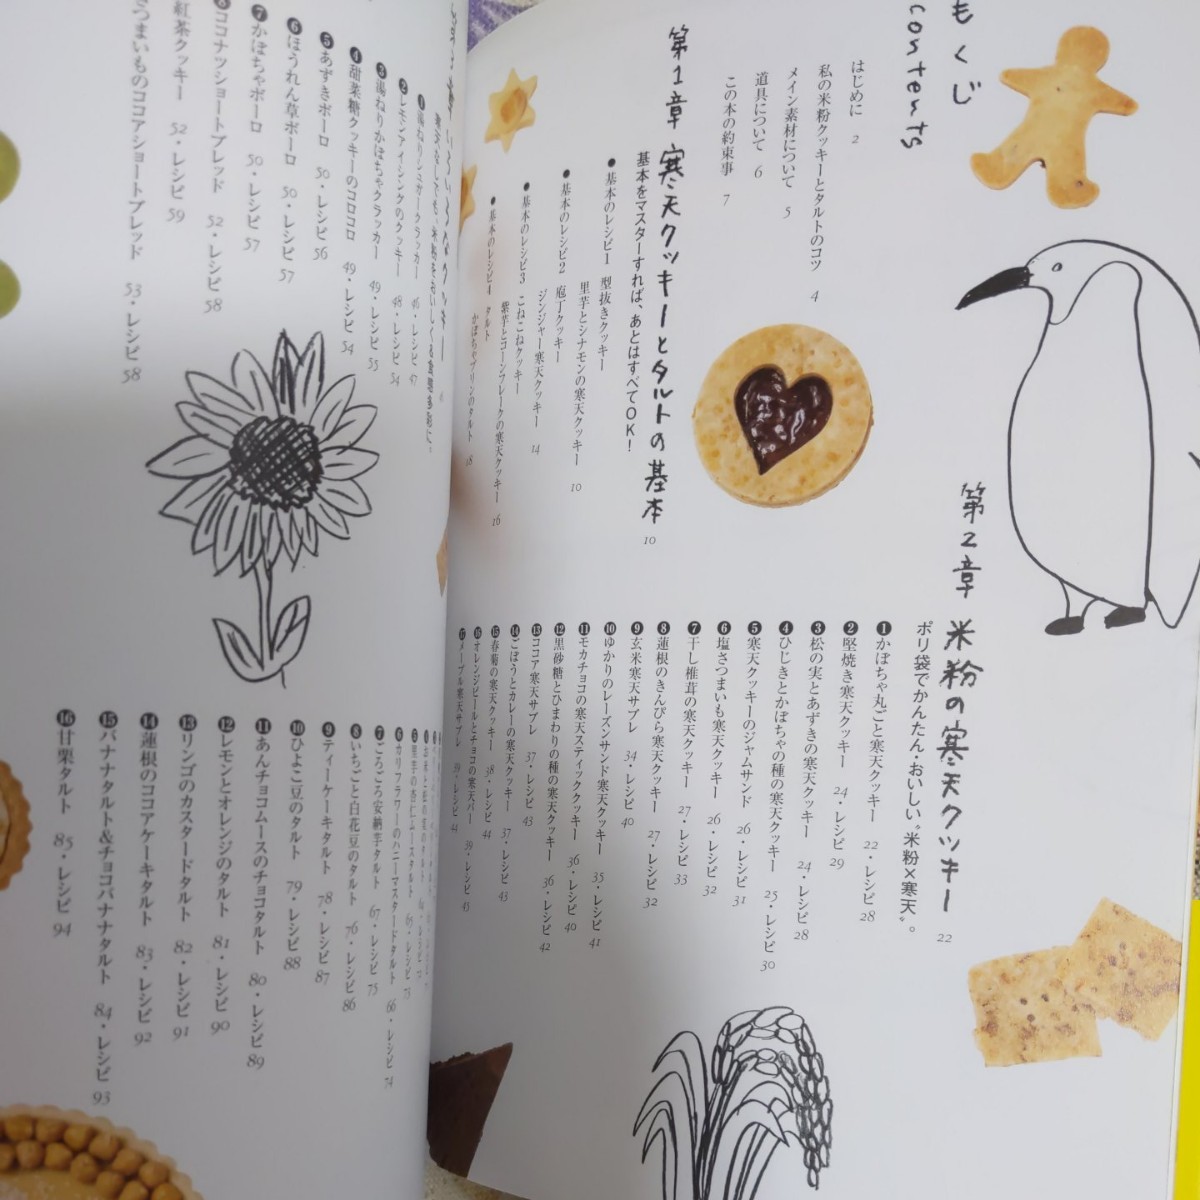 もくじ
costents
はじめに 2
私の米粉クッキーとタルトのコツ 4
メイン素材について 5
道具について 6
この本の約束事 7
第1章 寒天クッキーとタルトの基本 10
基本をマスターすれば、あとはすべてOK！
●基本のレシピ1 型抜きクッキー
里芋とシナモンの寒天クッキー 10
●基本のレシピ2 庖丁クッキー
ジンジャー寒天クッキー 14
●基本のレシピ3 こねこねクッキー
紫芋とコーンフレークの寒天クッキー 16
●基本のレシピ4 タルト
かぼちゃプリンのタルト 18
第2章 米粉の寒天クッキー 22
ポリ袋でかんたん・おいしい“米粉×寒天”。
❶かぼちゃ丸ごと寒天クッキー 22・レシピ28
❷堅焼き寒天クッキー 24・レシピ29
❸松の実とあずきの寒天クッキー 24・レシピ28
❹ひじきとかぼちゃの種の寒天クッキー 25・レシピ30
❺寒天クッキーのジャムサンド 26・レシピ31
❻塩さつまいも寒天クッキー 26・レシピ32
❼干し椎茸の寒天クッキー 27・レシピ33
❽蓮根のきんぴら寒天クッキー 27・レシピ32
❾玄米寒天サブレ 34・レシピ40
❿ゆかりのレーズンサンド寒天クッキー 35・レシピ41
⓫モカチョコの寒天スティッククッキー 36・レシピ40
⓬黒砂糖とひまわりの種の寒天クッキー 36・レシピ42
⓭ココア寒天サブレ 37・レシピ43
⓮ごぼうとカレーの寒天クッキー 37・レシピ43
⓯春菊の寒天クッキー 38・レシピ44
⓰オレンジピールとチョコの寒天バー 39・レシピ45
⓱メープル寒天サブレ 39・レシピ44
いろいろなクッキー
寒天なしでも、米粉をおいしく&食感多彩に。
❶湯ねりシュガークラッカー 46・レシピ47
❷レモンアイシングのクッキー 48・レシピ54
❸湯ねりかぼちゃクラッカー 49・レシピ55
❹甜菜糖クッキーのコロコロ 49・レシピ54
❺あずきボーロ 50・レシピ56
❻ほうれん草ボーロ 50・レシピ57
❼かぼちゃボーロ 50・レシピ57
❽ココナッツショートブレッド 52・レシピ58
紅茶クッキー 52・レシピ59
さつまいものココアショートブレッド 53・レシピ58
❺里芋の杏仁ムースタルト 65・レシピ73
❻カリフラワーのハニーマスタードタルト 66・レシピ74
❼ごろごろ安納芋タルト 67・レシピ75
❽いちごと白花豆のタルト 76・レシピ86
❾ティーケーキタルト 78・レシピ87
❿ひよこ豆のタルト 79・レシピ88
⓫あんチョコムースのチョコタルト 80・レシピ89
⓬レモンとオレンジのタルト 81・レシピ90
⓭リンゴのカスタードタルト 82・レシピ91
⓮蓮根のココアケーキタルト 83・レシピ92
⓯バナナタルト&チョコバナナタルト 84・レシピ93
⓰甘栗タルト 85・レシピ94